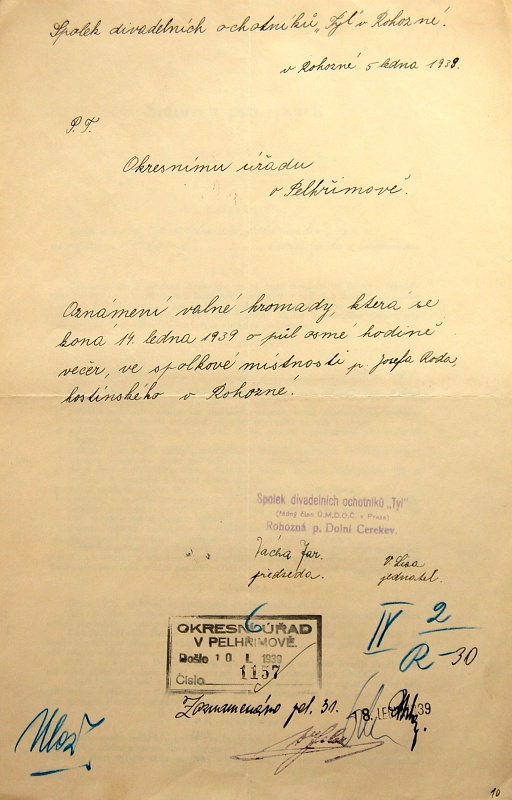 Spolek divadelních ochotníků „Tyl" v Rohozné.
v Rohozné 5 ledna 1939.
P. T.
Okresnímu úřadu
v Pelhřimově.
Oznámení valné hromady, která se
koná 14. ledna 1939 o půl osmé hodině
večer, ve spolkové místnosti p. Josefa Koda,
hostinského v Rohozné.
Spolek divadelních ochotníků „Tyl"
(řádný člen Ú.M.D.O.Č. v Praze)
Rohozná p. Dolní Cerekev.
Vácha Jar.
předseda.
V. Lisa
jednatel.
OKRESNÍ ÚŘAD
V PELHŘIMOVĚ.
Došlo 10 I. 1939
Číslo 1157
6
IV 2
R-30
Zaznamenáno pol. 31.
18. LED 1939
Ulož
10